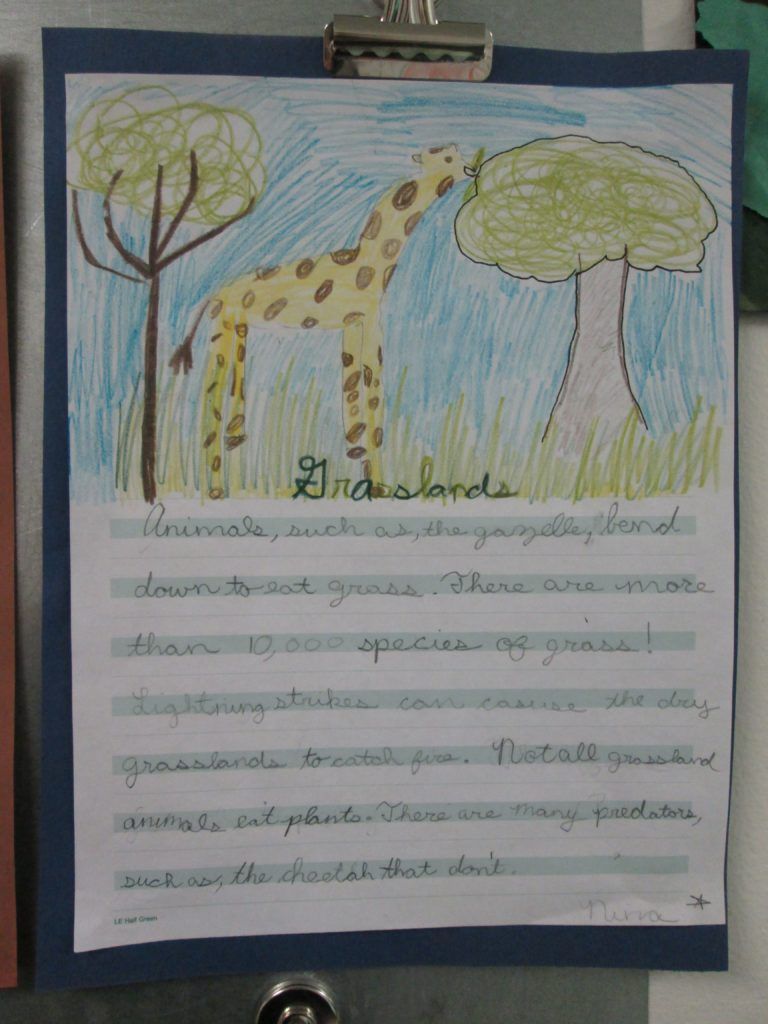 Grasslands
Animals, such as, the gazelle, bend
down to eat grass. There are more
than 10,000 species of grass!
Lightning strikes can casuse the dry
grasslands to catch fire. Not all grassland
animals eat plants. There are many predators,
such as, the cheetah that don't.
LE Half Green